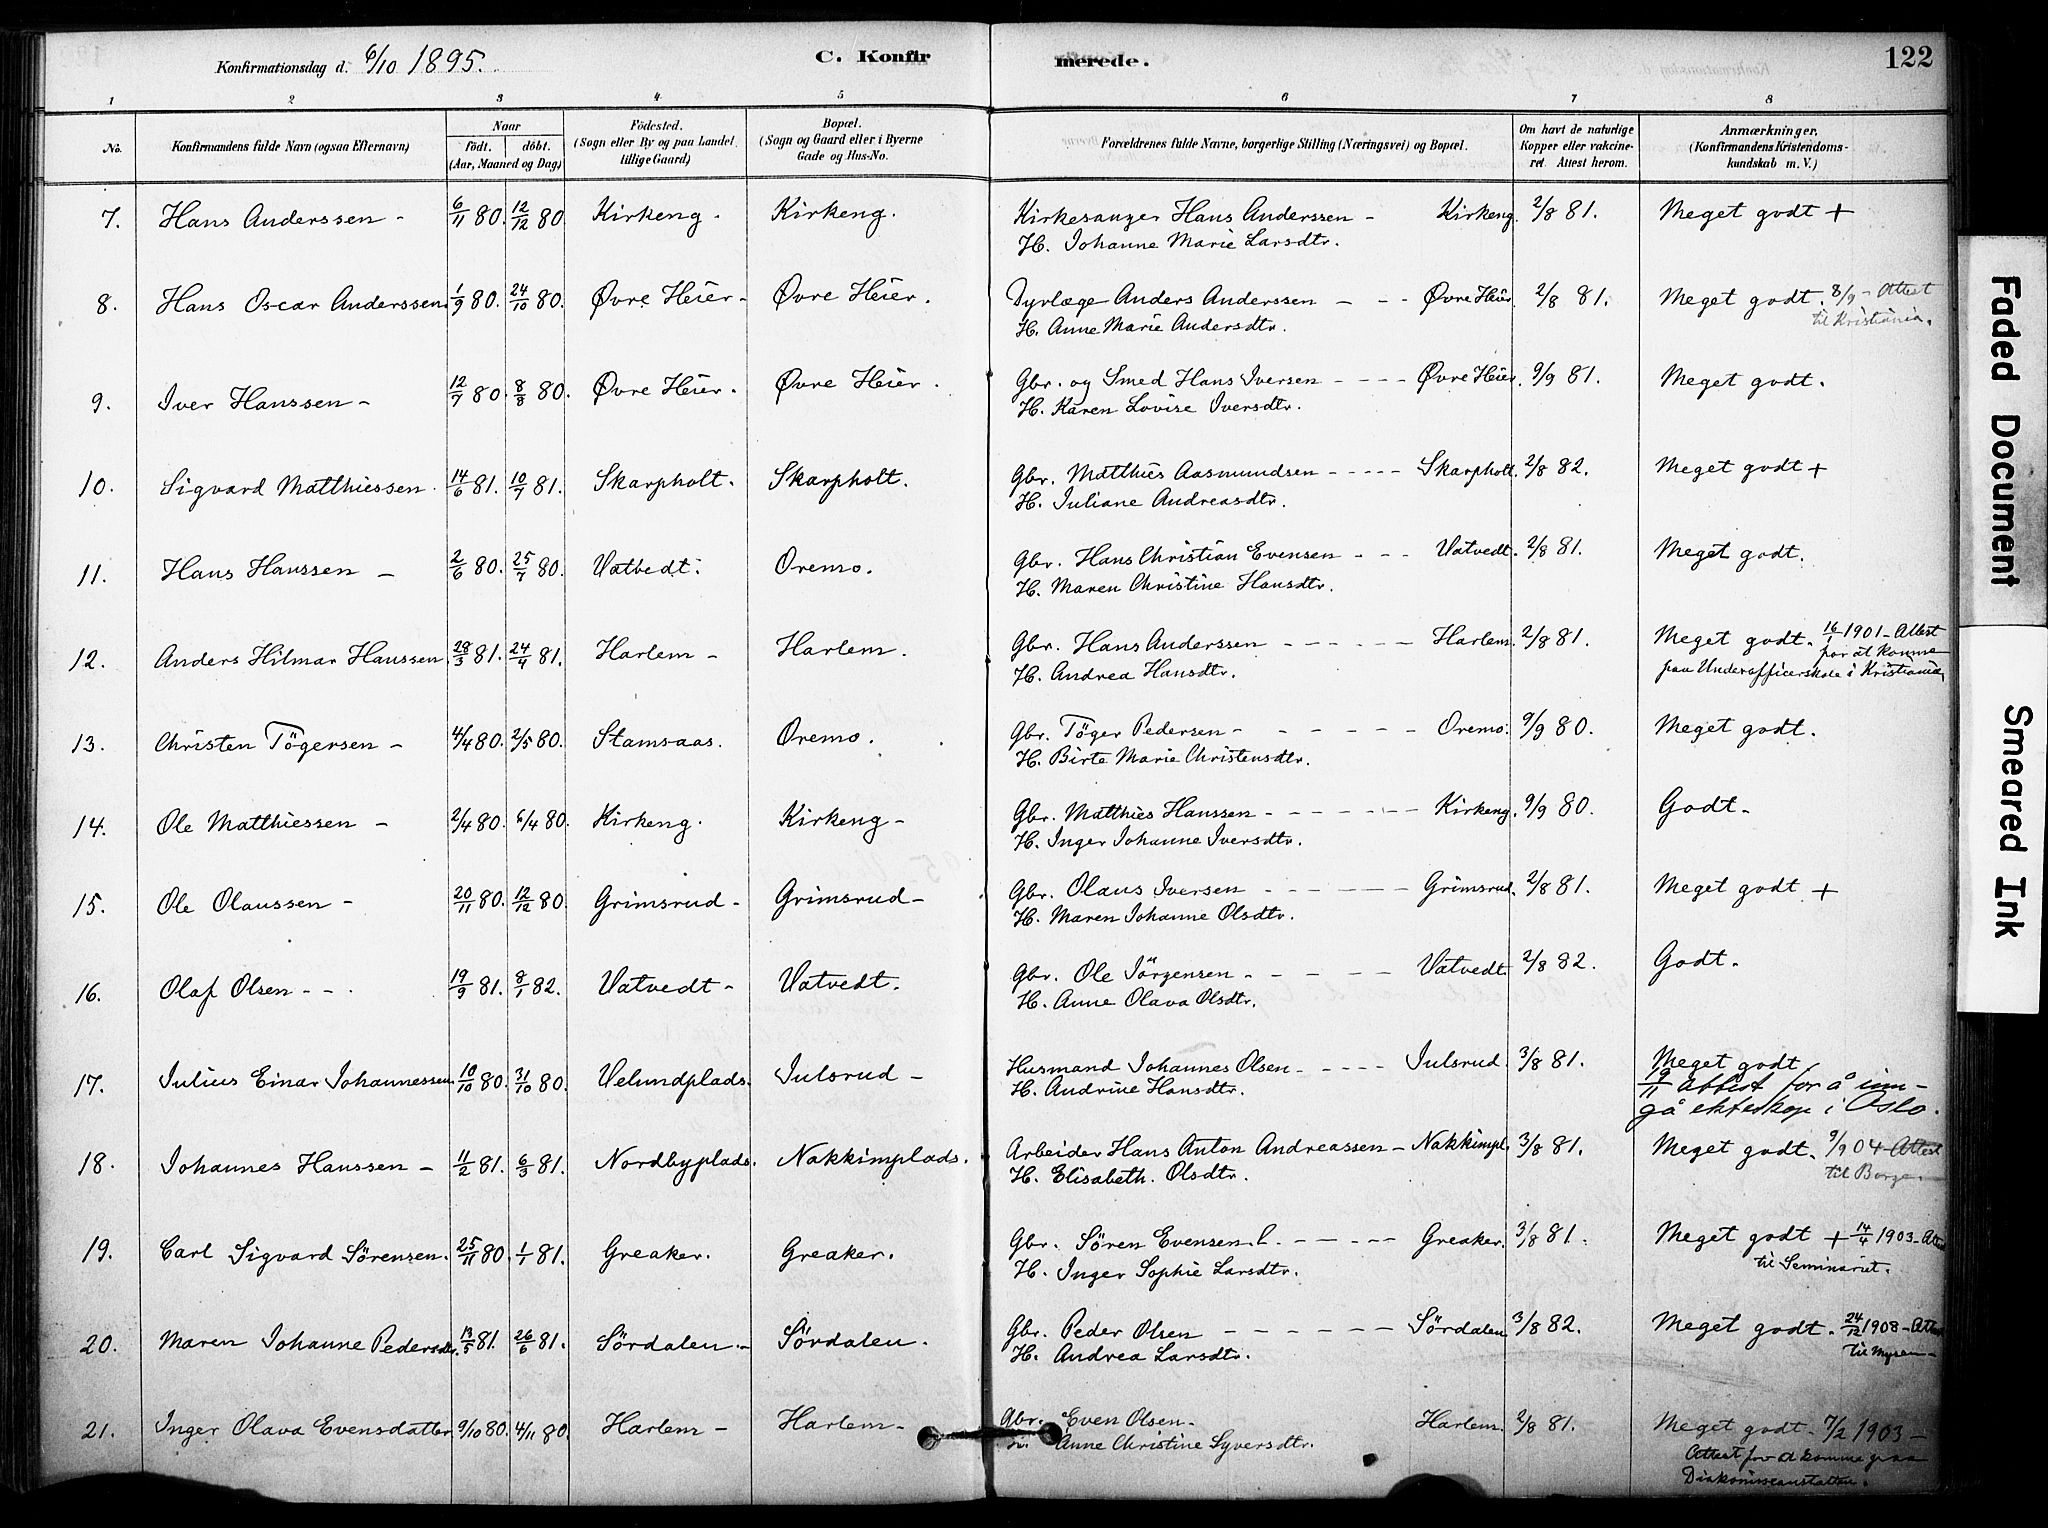 Konfirmationsdag d. 6/10 1895.
C. Konfir
merede.
122
1 2 3 4 5 6 7 8
No.
Konfirmandens fulde Navn (ogsaa Efternavn)
Naar
født. døbt.
(Aar, Maaned og Dag)
Fødested.
(Sogn eller By og paa Landet
tillige Gaard)
Bopæl.
(Sogn og Gaard eller i Byerne
Gade og Hus-No.
Forældrenes fulde Navne, borgerlige Stilling (Næringsvei) og Bopæl.
Om havt de naturlige
Kopper eller vakcine-
ret. Attest herom.
Anmærkninger.
(Konfirmandens Kristendoms-
kundskab m. V.)
7. Hans Anderssen - 6/11 80. 12/12 80. Kirkeng. Kirkeng. Kirkesanger Hans Anderssen - Kirkeng. 2/8 81. Meget godt +
H. Johanne Marie Larsdtr.
8. Hans Oscar Anderssen 1/9 80. 24/10 80. Øvre Heier - Øvre Heier. Dyrlæge Anders Anderssen - - - Øvre Heier. 2/8 81. Meget godt. 8/9 - Attest
H. Anne Marie Andersdtr. til Kristiania.
9. Iver Hanssen - 12/7 80. 8/8 80. Øvre Heier. Øvre Heier. Gbr. og Smed Hans Iversen - - - - Øvre Heier. 9/9 81. Meget godt.
H. Karen Lovise Iversdtr.
10. Sigvard Matthiessen. 14/6 81. 10/7 81. Skarpholt. Skarpholt. Gbr. Matthies Aasmundsen - - - - - Skarpholt. 2/8 82. Meget godt +
H. Juliane Andreasdtr.
11. Hans Hanssen - 2/6 80. 25/7 80. Vatvedt. Oremo. Gbr. Hans Christian Evensen - - - Vatvedt. 2/8 81. Meget godt.
H. Maren Christine Hansdtr.
12. Anders Hilmar Hanssen 28/3 81. 24/4 81. Harlem - Harlem. Gbr. Hans Anderssen - - - - - - Harlem. 2/8 81. Meget godt. 16/1 1901 - Attest
for at komme
H. Andrea Hansdtr. paa Underofficerskole i Kristiania.
13. Christen Tögersen - 4/4 80. 2/5 80. Stamsaas. Oremo. Gbr. Töger Pedersen - - - - - - Oremo. 9/9 80. Meget godt.
H. Birte Marie Christensdtr.
14. Ole Matthiessen - 2/4 80. 6/4 80. Kirkeng. Kirkeng - Gbr. Matthies Hanssen - - - - - - - Kirkeng. 9/9 80. Godt -
H. Inger Johanne Iversdtr.
15. Ole Olaussen - 20/11 80. 12/12 80. Grimsrud - Grimsrud - Gbr. Olaus Iversen - - - - - - Grimsrud. 2/8 81. Meget godt +
H. Maren Johanne Olsdtr.
16. Olaf Olsen - - . 19/9 81. 8/1 82. Vatvedt - Vatvedt. Gbr. Ole Jörgensen - - - - - Vatvedt. 2/8 82. Godt.
H. Anne Olava Olsdtr.
17. Julius Einar Johannessen. 10/10 80. 31/10 80. Velundplads. Julsrud - Husmand Johannes Olsen - - - - - Julsrud. 3/8 81. Meget godt
H. Andrine Hansdtr. 19/11 Attest for å inn-
gå ekteskap i Oslo.
18. Johannes Hanssen - 11/2 81. 6/3 81. Nordbyplads. Nakkimplads. Arbeider Hans Anton Andreassen - Nakkimpl. 3/8 81. Meget godt. 9/9 04 - Attest
H. Elisabeth. Olsdtr. til Borge.
19. Carl Sigvard Sörensen. 25/11 80. 1/1 81. Greaker. Greaker. Gbr. Sören Evensen - - - - - Greaker. 3/8 81. Meget godt + 14/4 1903 - Attest
H. Inger Sophie Larsdtr. til Seminariet.
20. Maren Johanne Pedersdtr. 13/5 81. 26/6 81. Sördalen - Sördalen. Gbr. Peder Olsen - - - - - - Sördalen 3/8 82. Meget godt. 24/12 1908 - Attest
H. Andrea Larsdtr. til Mysen -
21. Inger Olava Evensdatter 9/10 80. 4/11 80. Harlem - Harlem - Gbr. Even Olsen - Harlem. 2/8 81. Meget godt. 7/2 1903 -
H. Anne Christine Syversdtr. Attest for at komme paa
Diakonisseanstalten.
Faded Document
Smeared Ink